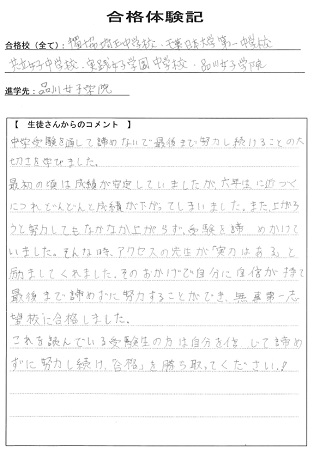 合格体験記
合格校(全て):獨協埼玉中学校・千葉日本大学第一中学校
共立女子中学校・実践女子学園中学校・品川女子学院
進学先:品川女子学院
【 生徒さんからのコメント 】
中学受験を通して諦めないで最後まで努力し続けることの大
切さを学びました。
最初の頃は成績が安定していましたが、六年生に近づく
につれどんどんと成績が下がってしまいました。また上がろ
うと努力してもなかなか上がらず、受験を諦めかけて
いました。そんな時、アクセスの先生が「実力はある」と
励ましてくれました。そのおかげで自分に自信が持て
最後まで諦めずに努力することができ、無事第一志
望校に合格しました。
これを読んでいる受験生の方は自分を信じて諦め
ずに努力し続け、「合格」を勝ち取ってください!